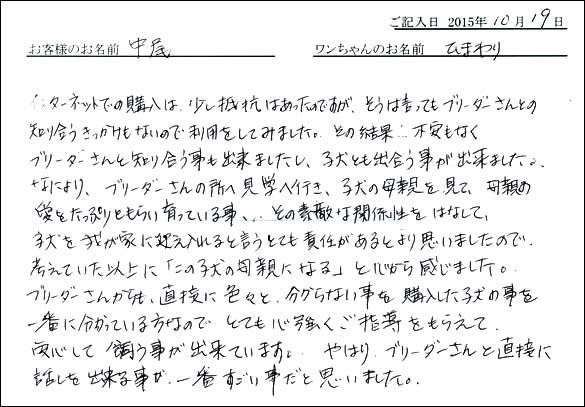 ご記入日 2015年10月19日
お客様のお名前 中尾 ワンちゃんのお名前 ひまわり
インターネットでの購入は、少し抵抗はあったのですが、そうは言ってもブリーダーさんとの
知り合うきっかけもないので利用をしてみました。その結果…不安もなく
ブリーダーさんと知り合う事も出来ましたし、子犬とも出合う事が出来ました。
なにより、ブリーダーさんの所へ見学へ行き、子犬の母親を見て、母親の
愛をたっぷりともらい育っている事、、、その素敵な関係性をはなして、
子犬を我が家に迎え入れると言うとても責任があるとより思いましたので、
考えていた以上に「この子犬の母親になる」と心から感じました。
ブリーダーさんからも、直接に色々と、分からない事を購入した子犬の事を
一番に分かっている方なのでとても心強くご指導をもらえて、
安心して飼う事が出来ています。やはり、ブリーダーさんと直接に
話しを出来る事が、一番すごい事だと思いました。